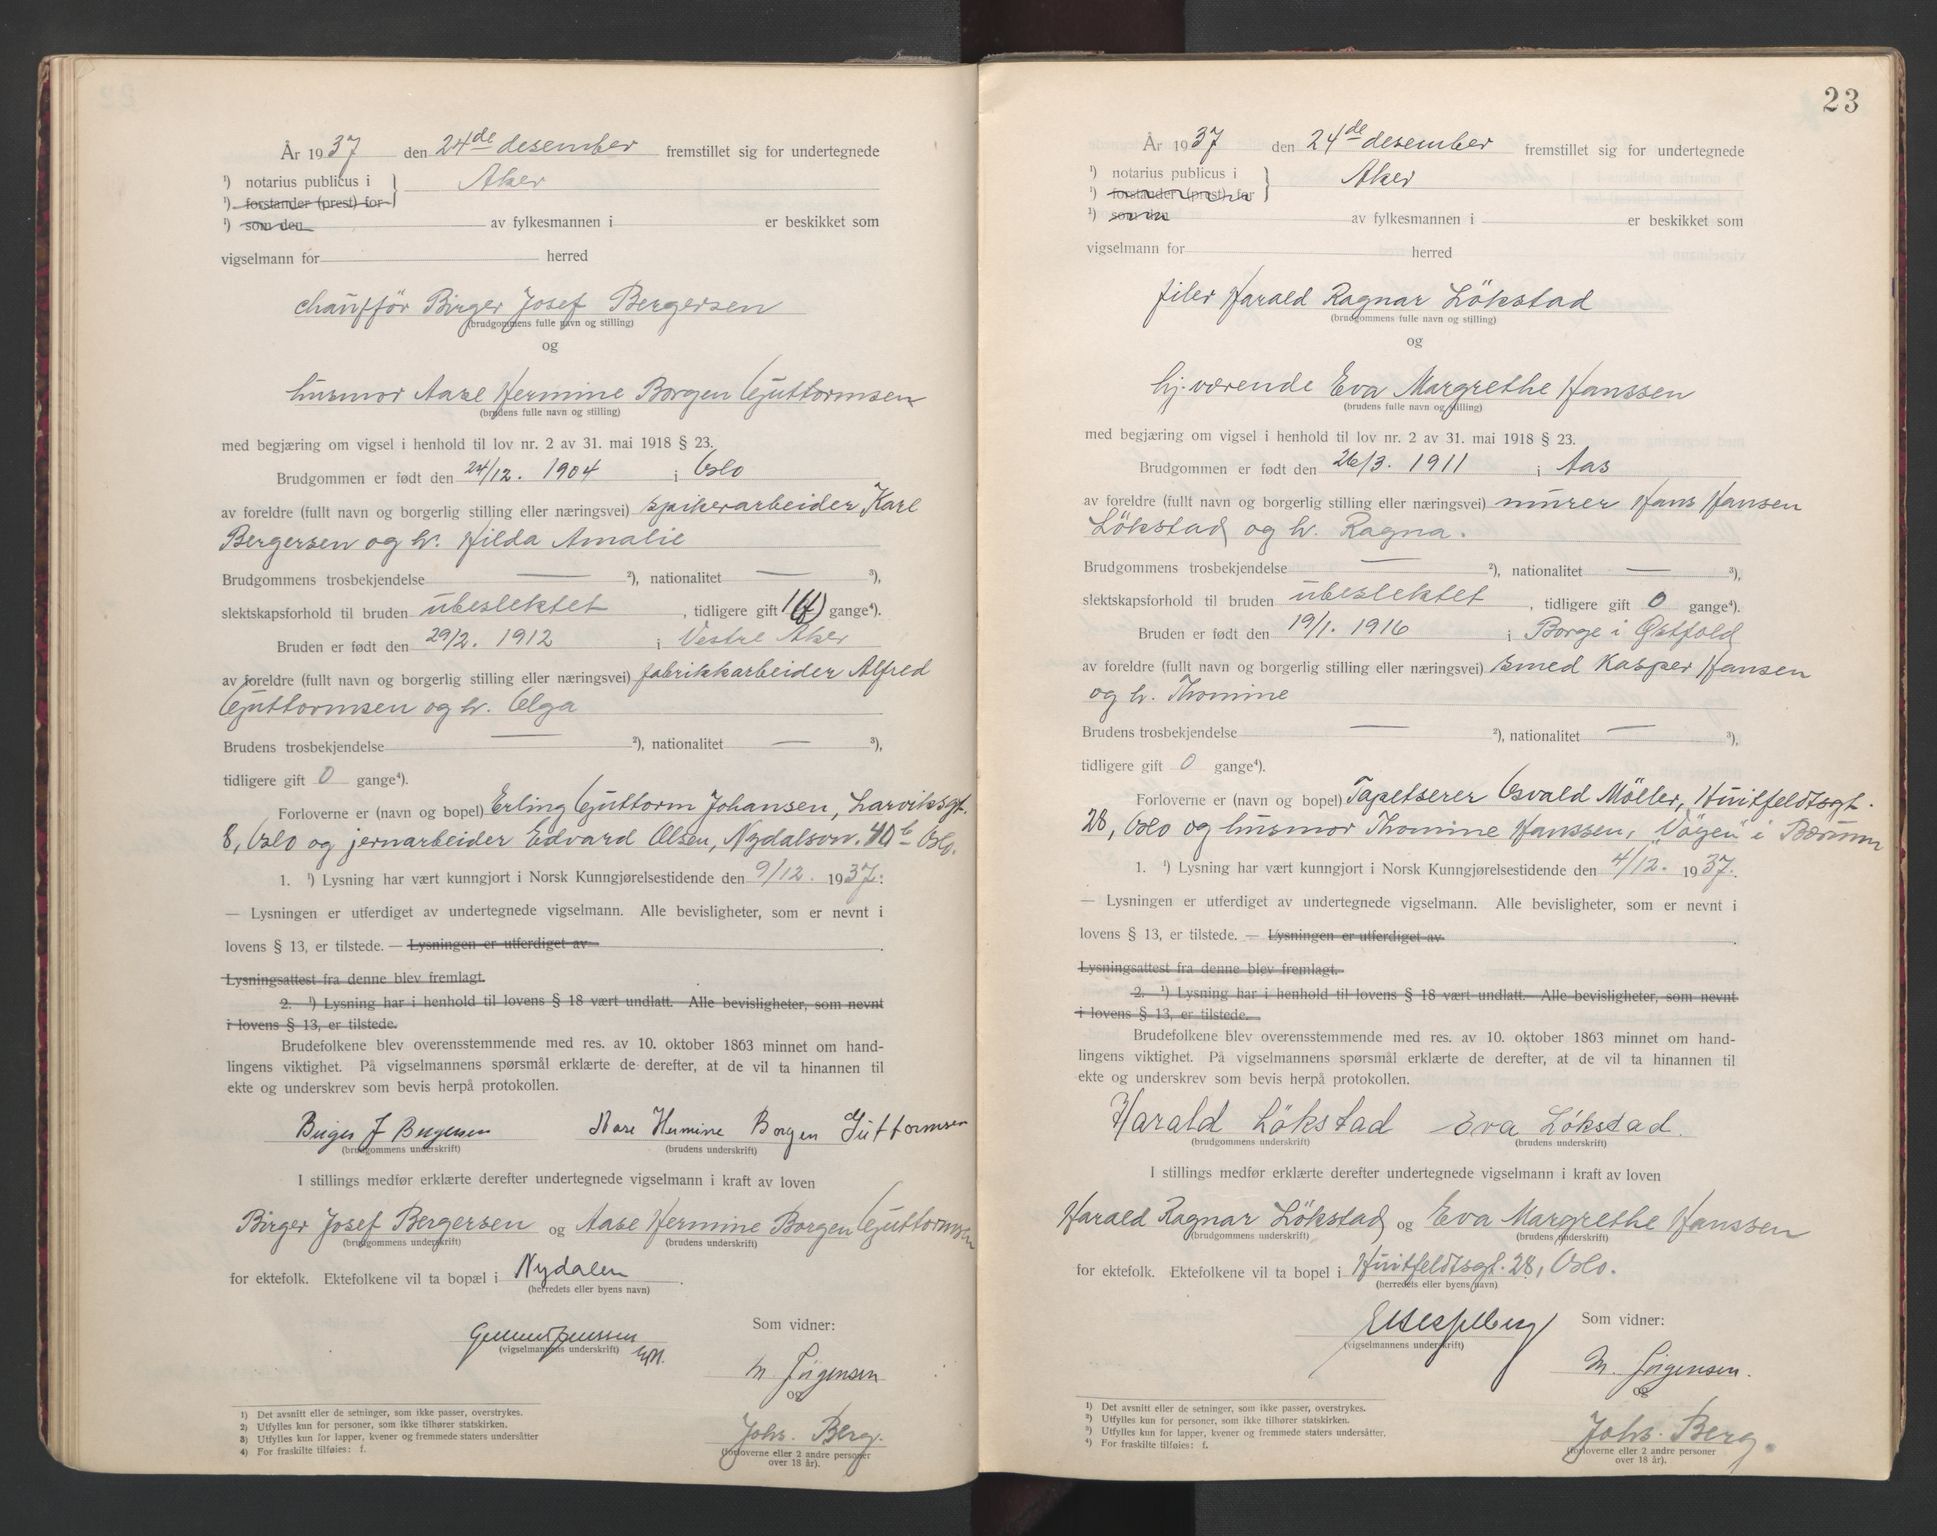 År 1937 den 24de desember fremstillet sig for undertegnede
¹) notarius publicus i } Aker
¹) forstander (prest) for
¹) som den av fylkesmannen i er beskikket som
vigselmann for herred
chauffør Birger Josef Bergersen
(brudgommens fulle navn og stilling)
og
husmor Aase Hermine Borgen Guttormsen
(brudens fulle navn og stilling)
med begjæring om vigsel i henhold til lov nr. 2 av 31. mai 1918 § 23.
Brudgommen er født den 24/12. 1904 i Oslo
av foreldre (fullt navn og borgerlig stilling eller næringsvei) spikerarbeider Karl
Bergersen og h. Hilda Amalie
Brudgommens trosbekjendelse — ²), nationalitet — ³),
slektskapsforhold til bruden ubeslektet, tidligere gift 1 (f) gange⁴).
Bruden er født den 29/2. 1912 i Vestre Aker
av foreldre (fullt navn og borgerlig stilling eller næringsvei) fabrikkarbeider Alfred
Guttormsen og h. Olga
Brudens trosbekjendelse — ²), nationalitet — ³),
tidligere gift 0 gange⁴).
Forloverne er (navn og bopel) Erling Guttorm Johansen, Larviksgt.
8, Oslo og jernarbeider Edvard Olsen, Nydalsvn. 40b Oslo.
1. ¹) Lysning har vært kunngjort i Norsk Kunngjørelsestidende den 9/12. 1937.
— Lysningen er utferdiget av undertegnede vigselmann. Alle bevisligheter, som er nevnt i
lovens § 13, er tilstede. — Lysningen er utferdiget av
Lysningsattest fra denne blev fremlagt.
2. ¹) Lysning har i henhold til lovens § 18 vært undlatt. Alle bevisligheter, som nevnt
i lovens § 13, er tilstede.
Brudefolkene blev overensstemmende med res. av 10. oktober 1863 minnet om hand-
lingens viktighet. På vigselmannens spørsmål erklærte de derefter, at de vil ta hinannen til
ekte og underskrev som bevis herpå protokollen.
Birger J Bergersen Aase Hermine Borgen Guttormsen
(brudgommens underskrift) (brudens underskrift)
I stillings medfør erklærte derefter undertegnede vigselmann i kraft av loven
Birger Josef Bergersen og Aase Hermine Borgen Guttormsen
(brudgommens underskrift) (brudens underskrift)
for ektefolk. Ektefolkene vil ta bopæl i Nydalen
(herredets eller byens navn)
Som vidner:
(vigselmannens underskrift)
M. Jørgensen
og
Johs. Berg.
(forloverne eller 2 andre personer
over 18 år).
1) Det avsnitt eller de setninger, som ikke passer, overstrykes.
2) Utfylles kun for personer, som ikke tilhører statskirken.
3) Utfylles kun for lapper, kvener og fremmede staters undersåtter
4) For fraskilte tilføies: f.
23
År 1937 den 24de desember fremstillet sig for undertegnede
¹) notarius publicus i } Aker
¹) forstander (prest) for
¹) som den av fylkesmannen i er beskikket som
vigselmann for herred
filer Harald Ragnar Lökstad
(brudgommens fulle navn og stilling)
og
hj.værende Eva Margrethe Hanssen
(brudens fulle navn og stilling)
med begjæring om vigsel i henhold til lov nr. 2 av 31. mai 1918 § 23.
Brudgommen er født den 26/3. 1911 i Aas
av foreldre (fullt navn og borgerlig stilling eller næringsvei) murer Hans Hansen
Lökstad og h. Ragna.
Brudgommens trosbekjendelse — ²), nationalitet — ³),
slektskapsforhold til bruden ubeslektet, tidligere gift 0 gange⁴).
Bruden er født den 19/1. 1916 i Borge i Østfold
av foreldre (fullt navn og borgerlig stilling eller næringsvei) smed Kasper Hansen
og h. Thomine
Brudens trosbekjendelse — ²), nationalitet — ³),
tidligere gift 0 gange⁴).
Forloverne er (navn og bopel) Tapetserer Osvald Möller, Huitfeldtsgt.
28, Oslo og husmor Thomine Hanssen, "Vöyen" i Bærum
1. ¹) Lysning har vært kunngjort i Norsk Kunngjørelsestidende den 4/12. 1937.
— Lysningen er utferdiget av undertegnede vigselmann. Alle bevisligheter, som er nevnt i
lovens § 13, er tilstede. — Lysningen er utferdiget av
Lysningsattest fra denne blev fremlagt.
2. ¹) Lysning har i henhold til lovens § 18 vært undlatt. Alle bevisligheter, som nevnt
i lovens § 13, er tilstede.
Brudefolkene blev overensstemmende med res. av 10. oktober 1863 minnet om hand-
lingens viktighet. På vigselmannens spørsmål erklærte de derefter, at de vil ta hinannen til
ekte og underskrev som bevis herpå protokollen.
Harald Lökstad Eva Lökstad.
(brudgommens underskrift) (brudens underskrift)
I stillings medfør erklærte derefter undertegnede vigselmann i kraft av loven
Harald Ragnar Lökstad og Eva Margrethe Hanssen
(brudgommens underskrift) (brudens underskrift)
for ektefolk. Ektefolkene vil ta bopel i Huitfeldtsgt. 28, Oslo.
(herredets eller byens navn)
Som vidner:
(vigselmannens underskrift)
M. Jørgensen.
og
Johs. Berg.
(forloverne eller 2 andre personer
over 18 år).
1) Det avsnitt eller de setninger, som ikke passer, overstrykes.
2) Utfylles kun for personer, som ikke tilhører statskirken.
3) Utfylles kun for lapper, kvener og fremmede staters undersåtter.
4) For fraskilte tilføies: f.